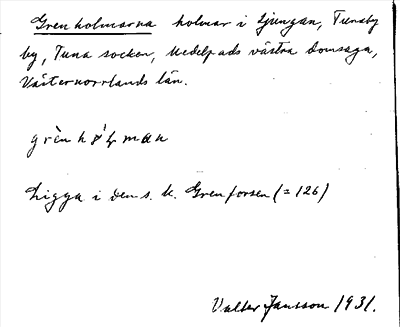 Grenholmarna holmar i Ljungan, Tunaby
by, Tuna socken, Medelpads västra domsaga,
Västernorrlands län.
grènhól̥man
Ligga i den s. k. Grenforsen (= 126)
Valter Jansson 1931.